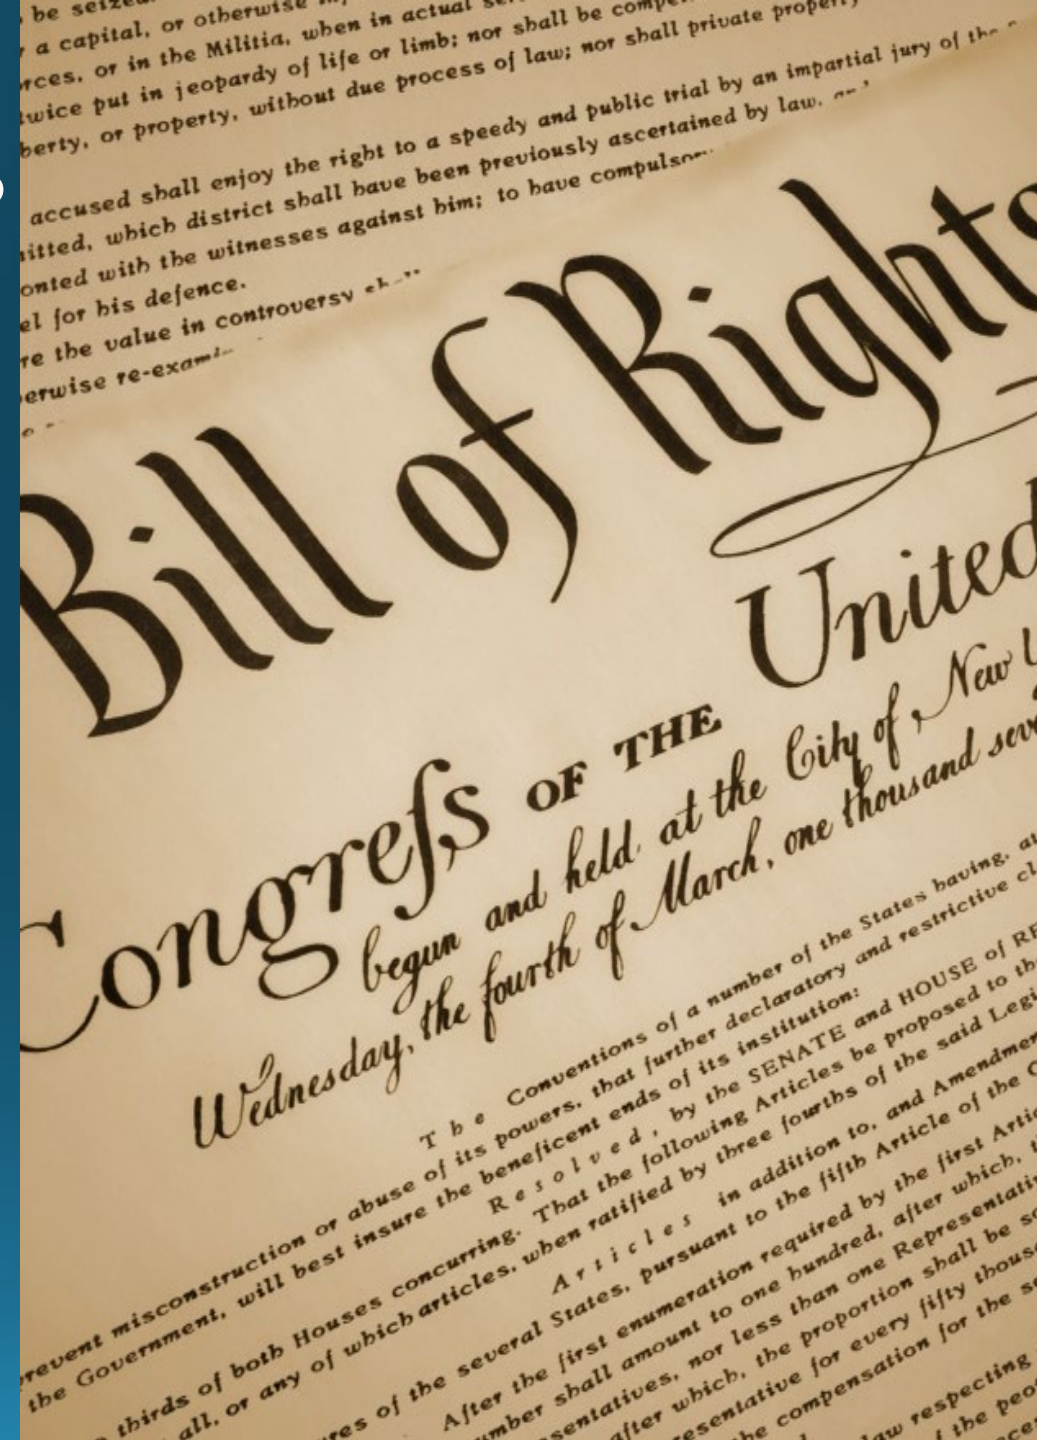 be seized
a capital, or otherwise
or in the Militia, when in actual
twice put in jeopardy of life or limb; nor shall be
or property, without due process of law; nor shall private property
accused shall enjoy the right to a speedy and public trial by an impartial jury of the
which district shall have been previously ascertained by law,
with the witnesses against him; to have
for his defence.
the value in controversy
Bill of Rights
Congreſs OF THE United
begun and held at the City of New
Wednesday, the fourth of March, one thousand
The Conventions of a number of the States having,
misconstruction or abuse of its powers, that further declaratory and restrictive
the Government, will best insure the beneficent ends of its institution:
Resolved, by the SENATE and HOUSE of
thirds of both Houses concurring. That the following Articles be proposed to
all, or any of which articles, when ratified by three fourths of the said
Articles in addition to, and
of the several States, pursuant to the fifth Article of the
After the first enumeration required by the first
shall amount to one hundred, after which,
nor less than one
after which, the proportion shall be
for every fifty
compensation for the
law respecting
the